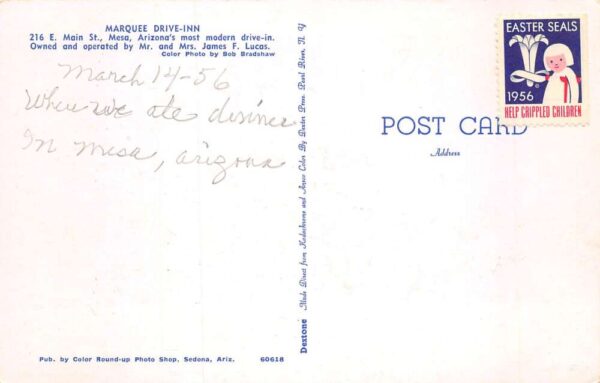 MARQUEE DRIVE-INN
216 E. Main St., Mesa, Arizona's most modern drive-in.
Owned and operated by Mr. and Mrs. James F. Lucas.
Color Photo by Bob Bradshaw
March 14-56
Where we ate
In Mesa, arizona
Pub. by Color Round-up Photo Shop, Sedona, Ariz.
60618
Dextone Made Direct from Kodachrome and Ansco Color By Dexter Press, Pearl River, N. Y.
POST CARD
Address
EASTER SEALS
1956
HELP CRIPPLED CHILDREN